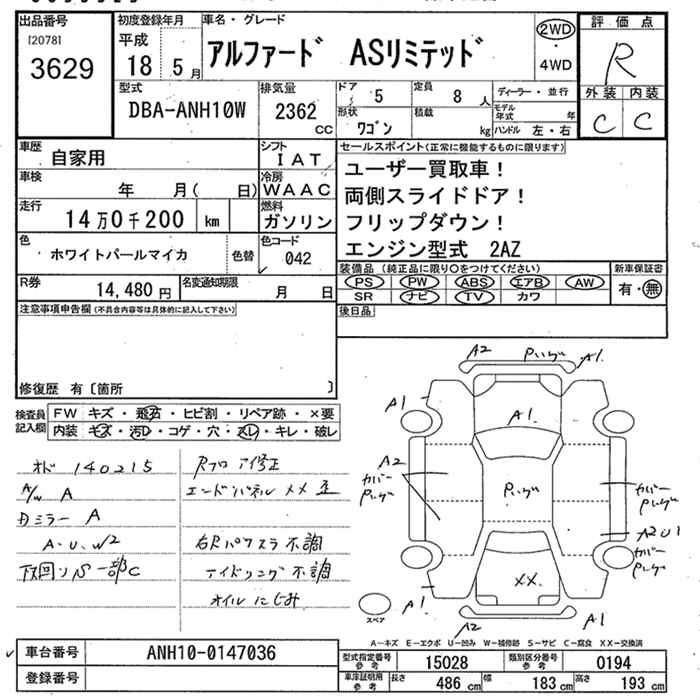 出品番号
[2078]
3629
初度登録年月
平成
18 5 月
車名・グレード
アルファード ASリミテッド
2WD
・
4WD
評価点
R
外装 内装
C C
型式
DBA-ANH10W
排気量
2362
CC
ドア
5
定員
8 人
形状
ワゴン
積載
kg
ディーラー・並行
モデル年式 年
ハンドル 左・右
車歴
自家用
シフト
IAT
車検
年 月( 日)
冷房
WAAC
走行
14万0千200 km
燃料
ガソリン
色
ホワイトパールマイカ
色替
色コード
042
R券
14,480円
名変通知期限
月 日
セールスポイント(正常に機能するものに限ります)
ユーザー買取車!
両側スライドドア!
フリップダウン!
エンジン型式 2AZ
装備品(純正品に限り○をつけてください)
PS PW ABS エアB AW
SR ナビ TV カワ
新車保証書
有・無
後日品
注意事項申告欄(不具合内容等は具体的に記入して下さい)
修復歴 有〔箇所 〕
検査員記入欄
FW キズ・飛石・ヒビ割・リペア跡・×要
内装 キズ・汚レ・コゲ・穴・スレ・キレ・破レ
オド 140215
A/W A
カミラー A
A・U・W2
下回リS一部C
Rフロア修正
エンドパネル××歪
右Rパワスラ不調
アイドリング不調
オイルにじみ
A2 Pいげ A1
A1 A1
A1
A2
カバー
Pいげ
Pいげ
カバー
Pいげ
A2U1
カバー
Pいげ
××
A1 A1
スペア
A2
A-キズ E-エクボ U-凹み W-補修跡 S-サビ C-腐食 XX-交換済
車台番号
ANH10-0147036
登録番号
型式指定番号
参考
15028
類別区分番号
参考
0194
車庫証明用
参考
長さ
486 cm
幅
183 cm
高さ
193 cm